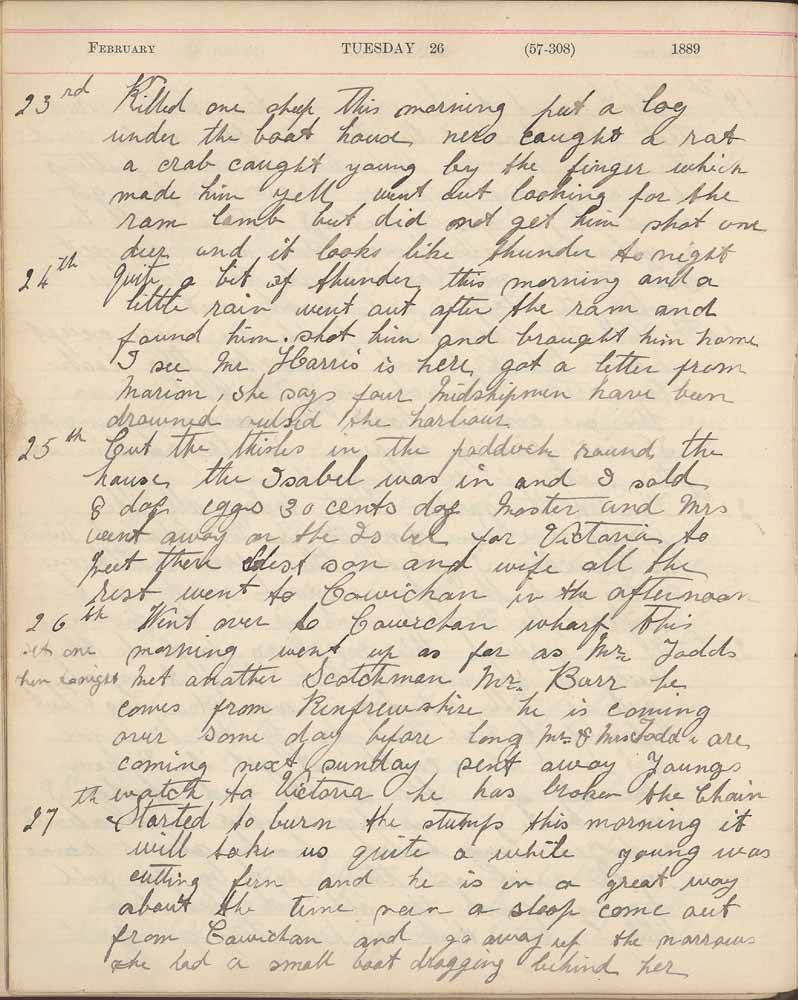 FEBRUARY TUESDAY 26 (57-308) 1889
23rd Killed one sheep this morning put a log
under the boat house nero caught a rat
a crab caught young by the finger which
made him yell went out looking for the
ram lamb but did not get him shot one
deer and it looks like thunder to night
24th Quite a bit of thunder this morning and a
little rain went out after the ram and
found him. shot him and braught him home
I see Mr Harris is here got a letter from
Marion, she says four Midshipmen have been
drowned outsid the harbour
25th Cut the thisles in the paddock round the
house the Isabel was in and I sold
8 doz eggs 30 cents doz Master and Mrs
went away on the Is bel for Victoria to
meet there eldest son and wife all the
rest went to Cowichan in the afternoon
26th Went over to Cowichan wharf this
morning went up as far as Mr. Todds
set one hen tonight
Met another Scotchman Mr. Barr he
comes from Renfrewshire he is coming
over some day before long Mr. & Mrs Todd are
coming next sunday sent away Youngs
watch to Victoria he has broken the Chain
27th Started to burn the stumps this morning it
will take us quite a while young was
cutting fern and he is in a great way
about the time nan a sloop come out
from Cowichan and go away up the narrows
she had a small boat dragging behind her